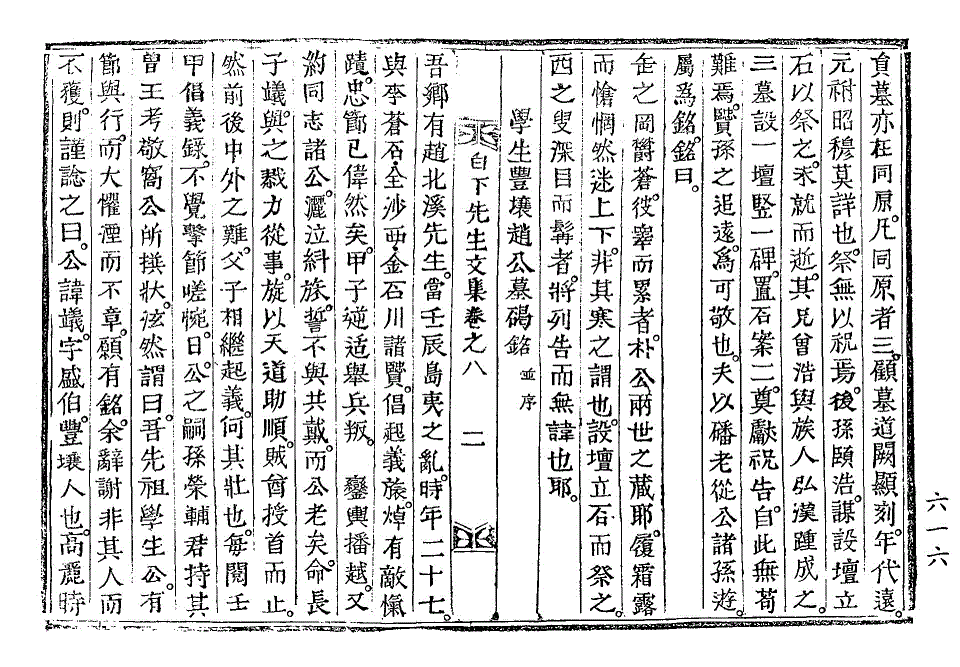 貟墓亦在同原凡同原者三顧墓道闕顯刻年代遠
元祔昭穆莫詳也祭無以祝焉後孫頤浩謀設壇立
石以祭之未就而逝其兄曾浩與族人弘漢踵成之
三墓設一壇竪一碑置石案二奠獻祝告自此無苟
難焉賢孫之追遠爲可敬也夫以磻老從公諸孫遊
屬爲銘銘曰
缶之岡欝蒼彼睾而累者朴公兩世之藏耶履霜露
而愴惘然迷上下非其寒之謂也設壇立石而祭之
西之叟深目而髯者將列告而無諱也耶
學生豐壤趙公墓碣銘 並序
白下先生文集卷之八 二
吾鄕有趙北溪先生當壬辰島夷之亂時年二十七
與李蒼石全沙西金石川諸賢倡起義旅焯有敵愾
蹟忠節已偉然矣甲子逆适舉兵叛 鑾輿播越又
約同志諸公灑泣糾旅誓不與共戴而公老矣命長
子𡾋與之戮力從事旋以天道助順賊酋授首而止
然前後中外之難父子相繼起義何其壯也每閱壬
甲倡義錄不覺擊節嗟惋日公之嗣孫榮輔君持其
曾王考敬窩公所撰狀泫然謂曰吾先祖學生公有
節與行而大懼湮而不章願有銘余辭謝非其人而
不獲則謹諗之曰公諱𡾋字盛伯豐壤人也高麗時
六一六